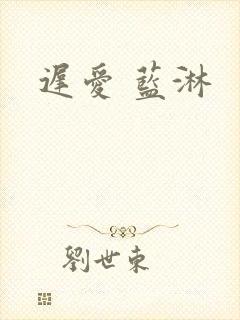 遲愛 藍淋
劉世東